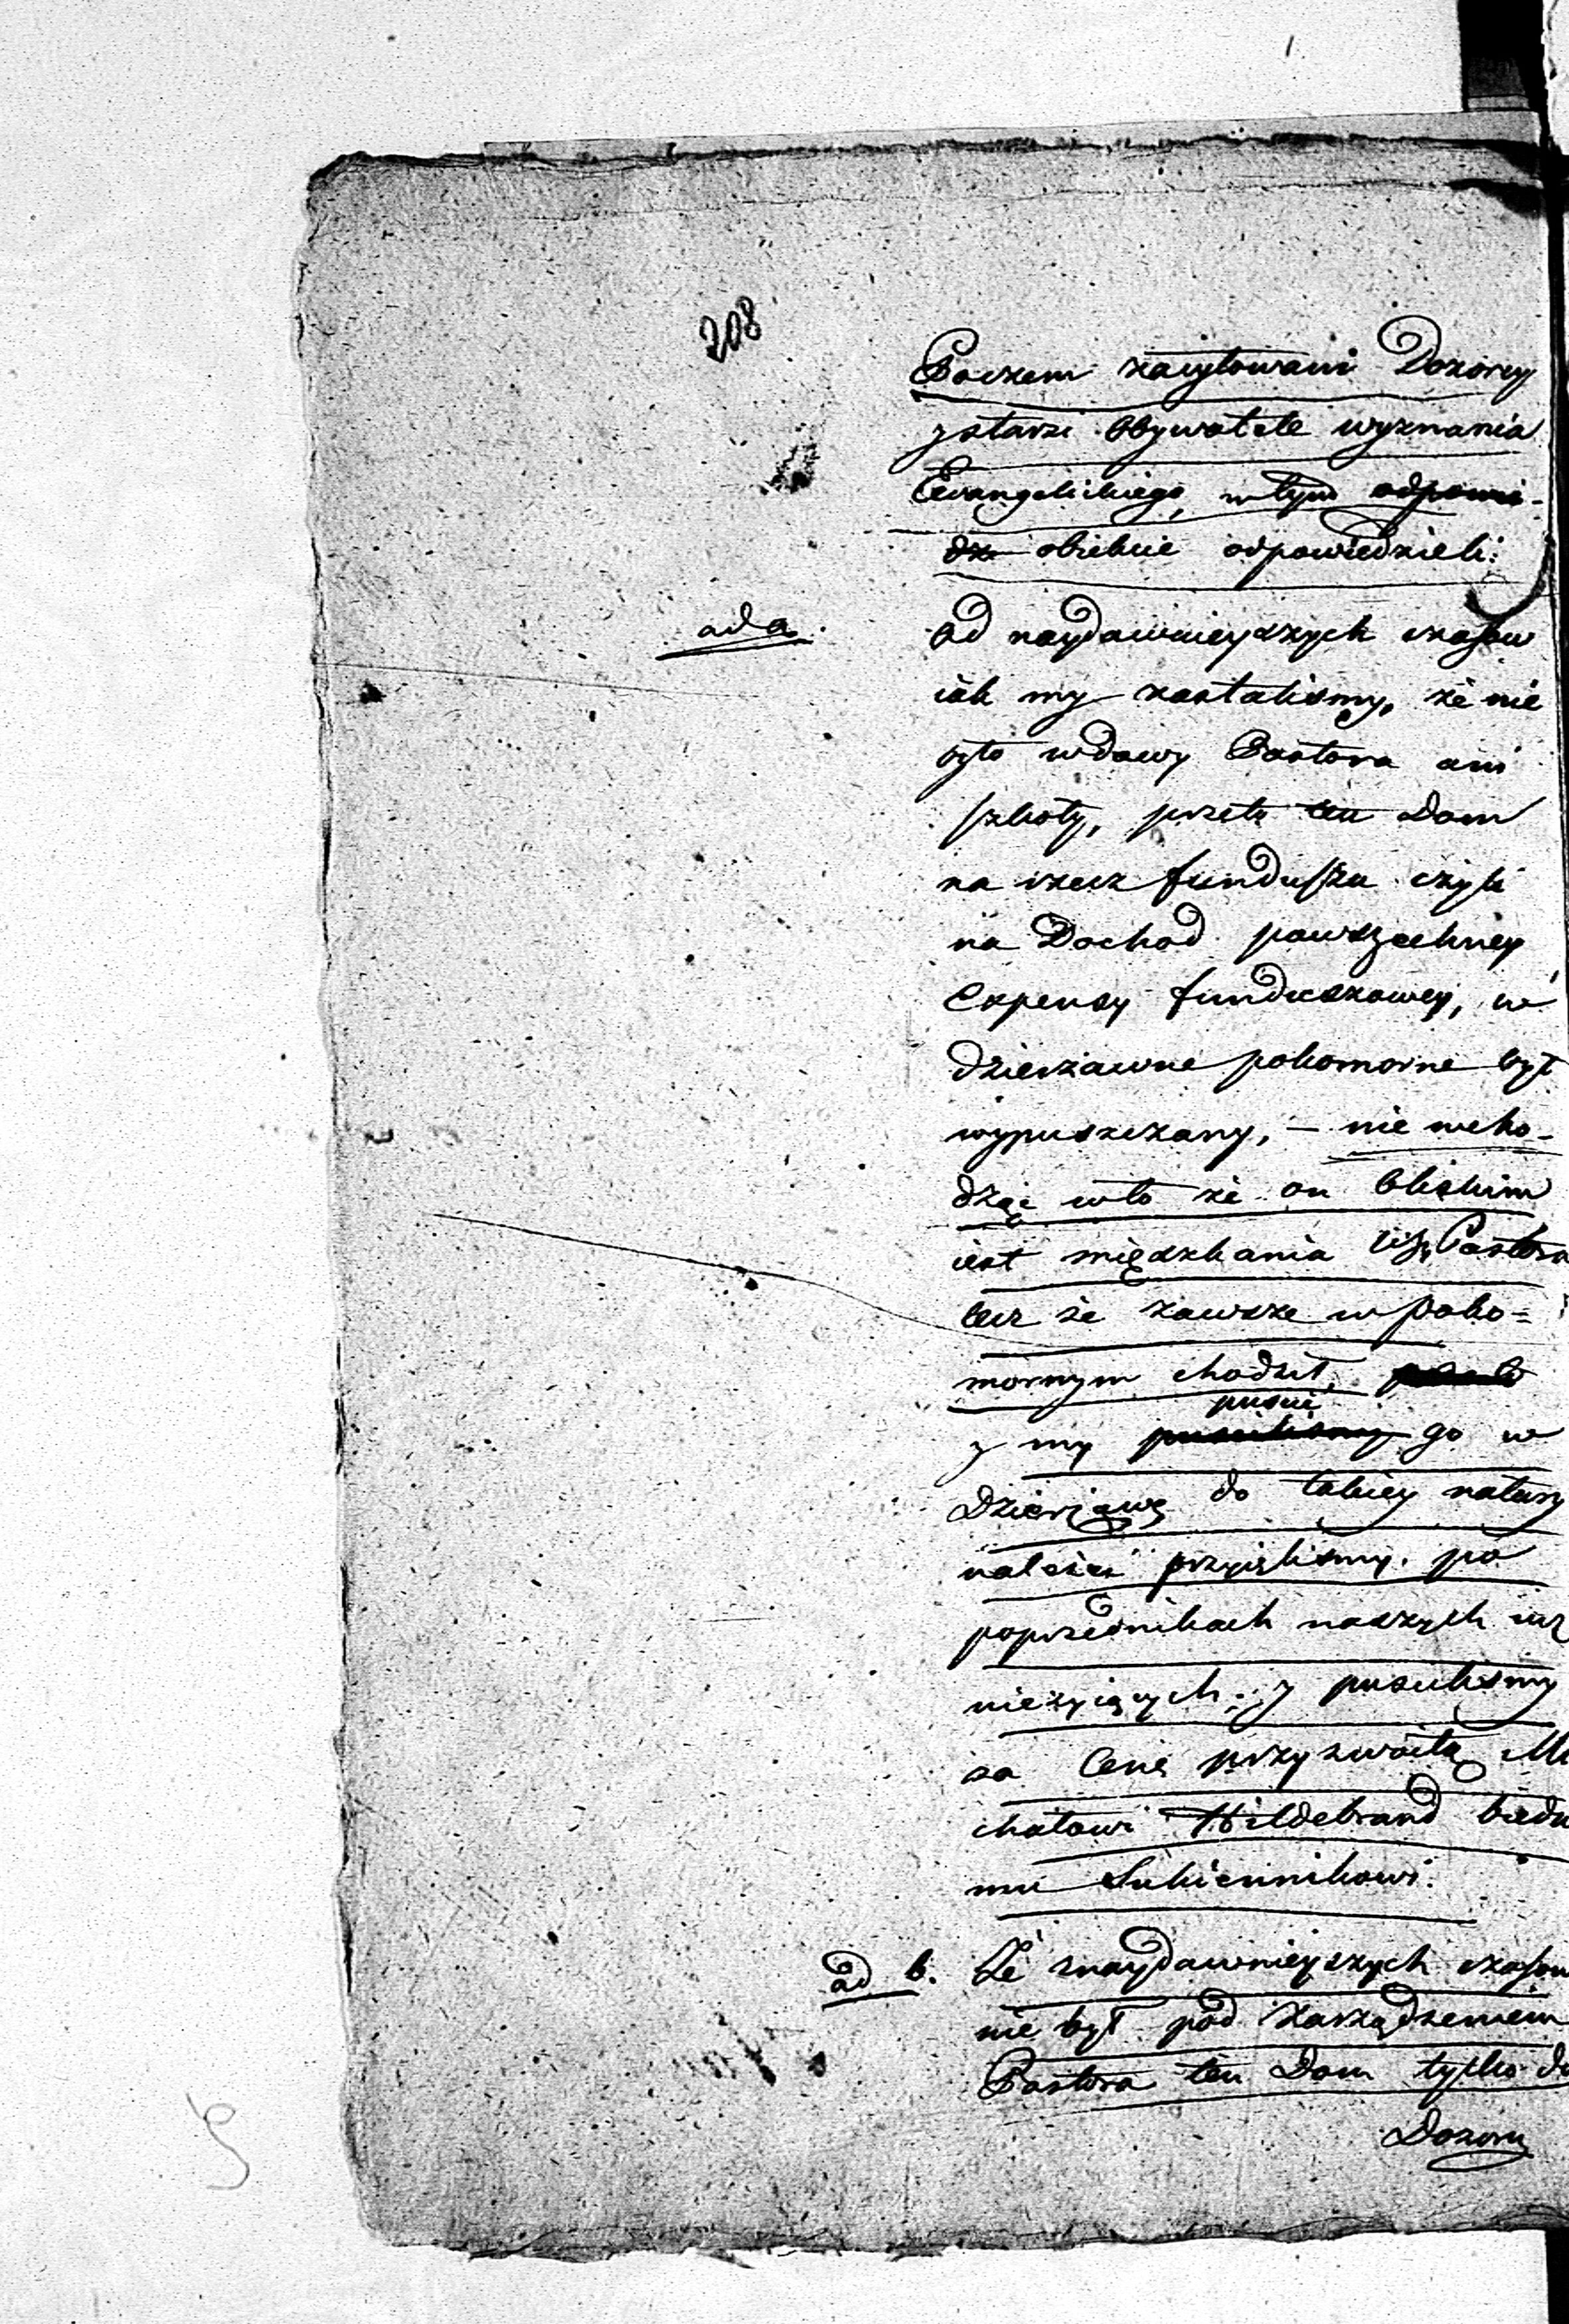 208
Poczem zacytowani Dozorcy
y starsi Obywatele wyznania
Ewangelickiego, w tym odpowie-
dz obiekcie odpowiedzieli:
ad a. od naydawnieyszych czasow
iak my zastalismy, że nie
było wdowy Pastora ani
szkoły, przeto ten Dom
na rzecz funduszu czyli
na Dochod powszechney
Expensy funduszowey, w
dzierzawne pokomorne był
wypuszczany, – nie wcho-
dząc w to że on bliskim
iest mięszkania Pastora
lecz że zawsze w poko-
mornym chodził,
y my pusci go w
Dzierzawę do takiey natury
przyięlismy. po
poprzednikach naszych iuż
nieżyiących, y puscilismy
za Cenę przyzwoitą Mi
chałowi Hildebrand biedne
mu Sukiennikowi.
ad b. Że znaydawnieyszych czasow
nie był pod zarządzeniem
Pastora ten Dom tylko do
Dozoru